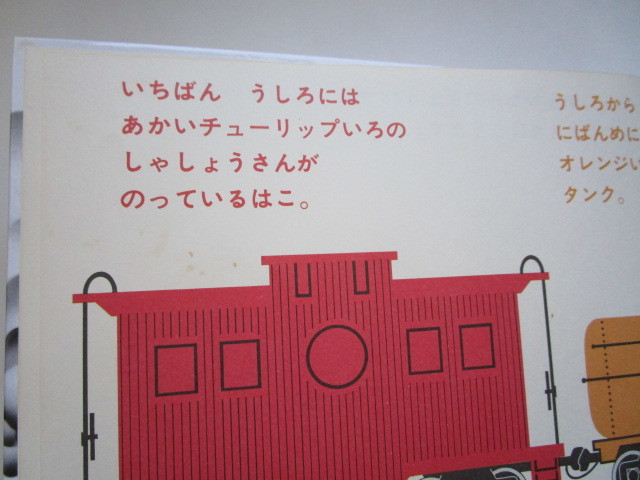 いちばん　うしろには
あかいチューリップいろの
しゃしょうさんが
のっているはこ。
うしろから
にばんめに
オレンジい
タンク。